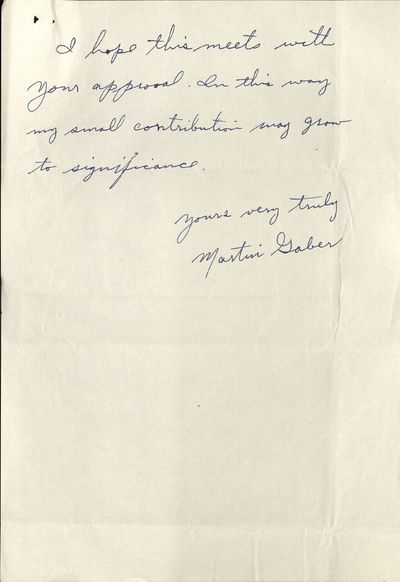 I hope this meets with
your approval. In this way
my small contribution may grow
to significance.
yours very truly
Martin Gaber